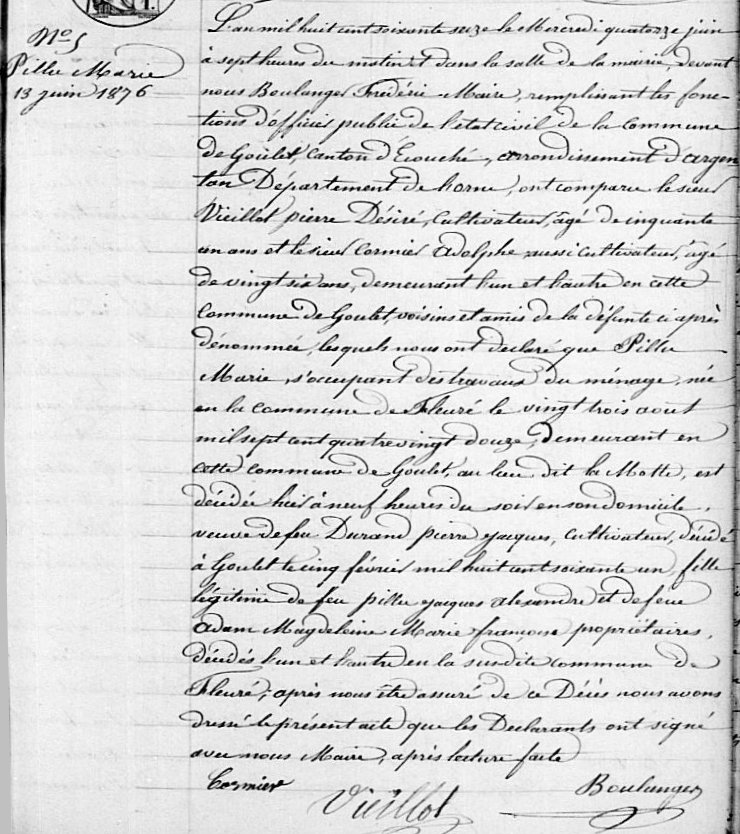 L'an mil huit cent soixante seize le Mercredi quatorze juin
N° 5
à sept heures du matin et dans la salle de la mairie, devant
Pillu Marie
nous Boulanger Frédéric Maire, remplissant les fonc-
13 juin 1876
tions d'officier public de l'état civil de la commune
de Goulet, Canton d'Ecouché, arrondissement d'argen
tan Département de l'orne, ont comparu le sieur
Vieillot pierre Désiré, Cultivateur, âgé de cinquante
un ans et le sieur Cormier Adolphe aussi cultivateur, âgé
de vingt six ans, demeurant l'un et l'autre en cette
commune de Goulet, voisins et amis de la défunte ci après
dénommée, lesquels nous ont déclaré que Pillu
Marie, s'occupant des travaux du ménage, née
en la commune de Fleuré le vingt trois aout
mil sept cent quatre vingt douze, demeurant en
cette commune de Goulet, au lieu dit la Motte, est
décédée hier à neuf heures du soir en son domicile,
veuve de feu Durand pierre jacques, cultivateur, décédé
à Goulet le cinq février mil huit cent soixante un, fille
légitime de feu pillu jacques alexandre et de feue
Adam Magdeleine Marie françoise propriétaires,
décédés l'un et l'autre en la susdite commune de
Fleuré, après nous être assuré de ce Décès nous avons
dressé le présent acte que les Déclarants ont signé
avec nous Maire, après lecture faite
Cormier
Vieillot
Boulanger